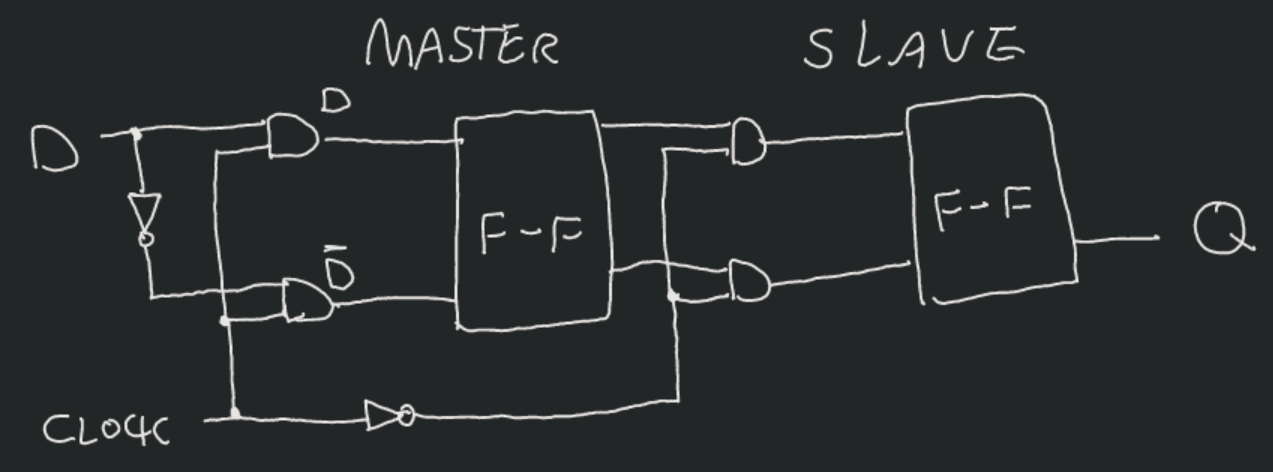 MASTER
SLAVE
D
D
D̅
F-F
F-F
Q
CLOCK